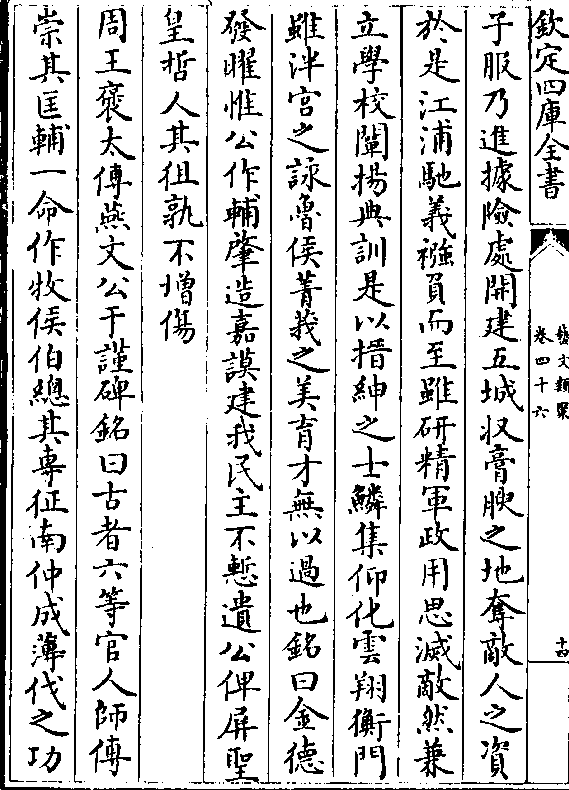 欽定四庫全書
藝文類聚
卷四十六
十四
子服乃進據險處開建五城收膏腴之地奪敵人之資
於是江浦馳義襁負而至雖研精軍政用思滅敵然兼
立學校闡揚典訓是以搢紳之士鱗集仰化雲翔衡門
雖泮宮之詠魯侯菁莪之美育才無以過也銘曰金德
發曜惟公作輔肇造嘉謨建我民主不慭遺公俾屏聖
皇哲人其徂孰不增傷
周王褒太傅燕文公于謹碑銘曰古者六等官人師傅
崇其匡輔一命作牧侯伯總其專征南仲成薄伐之功